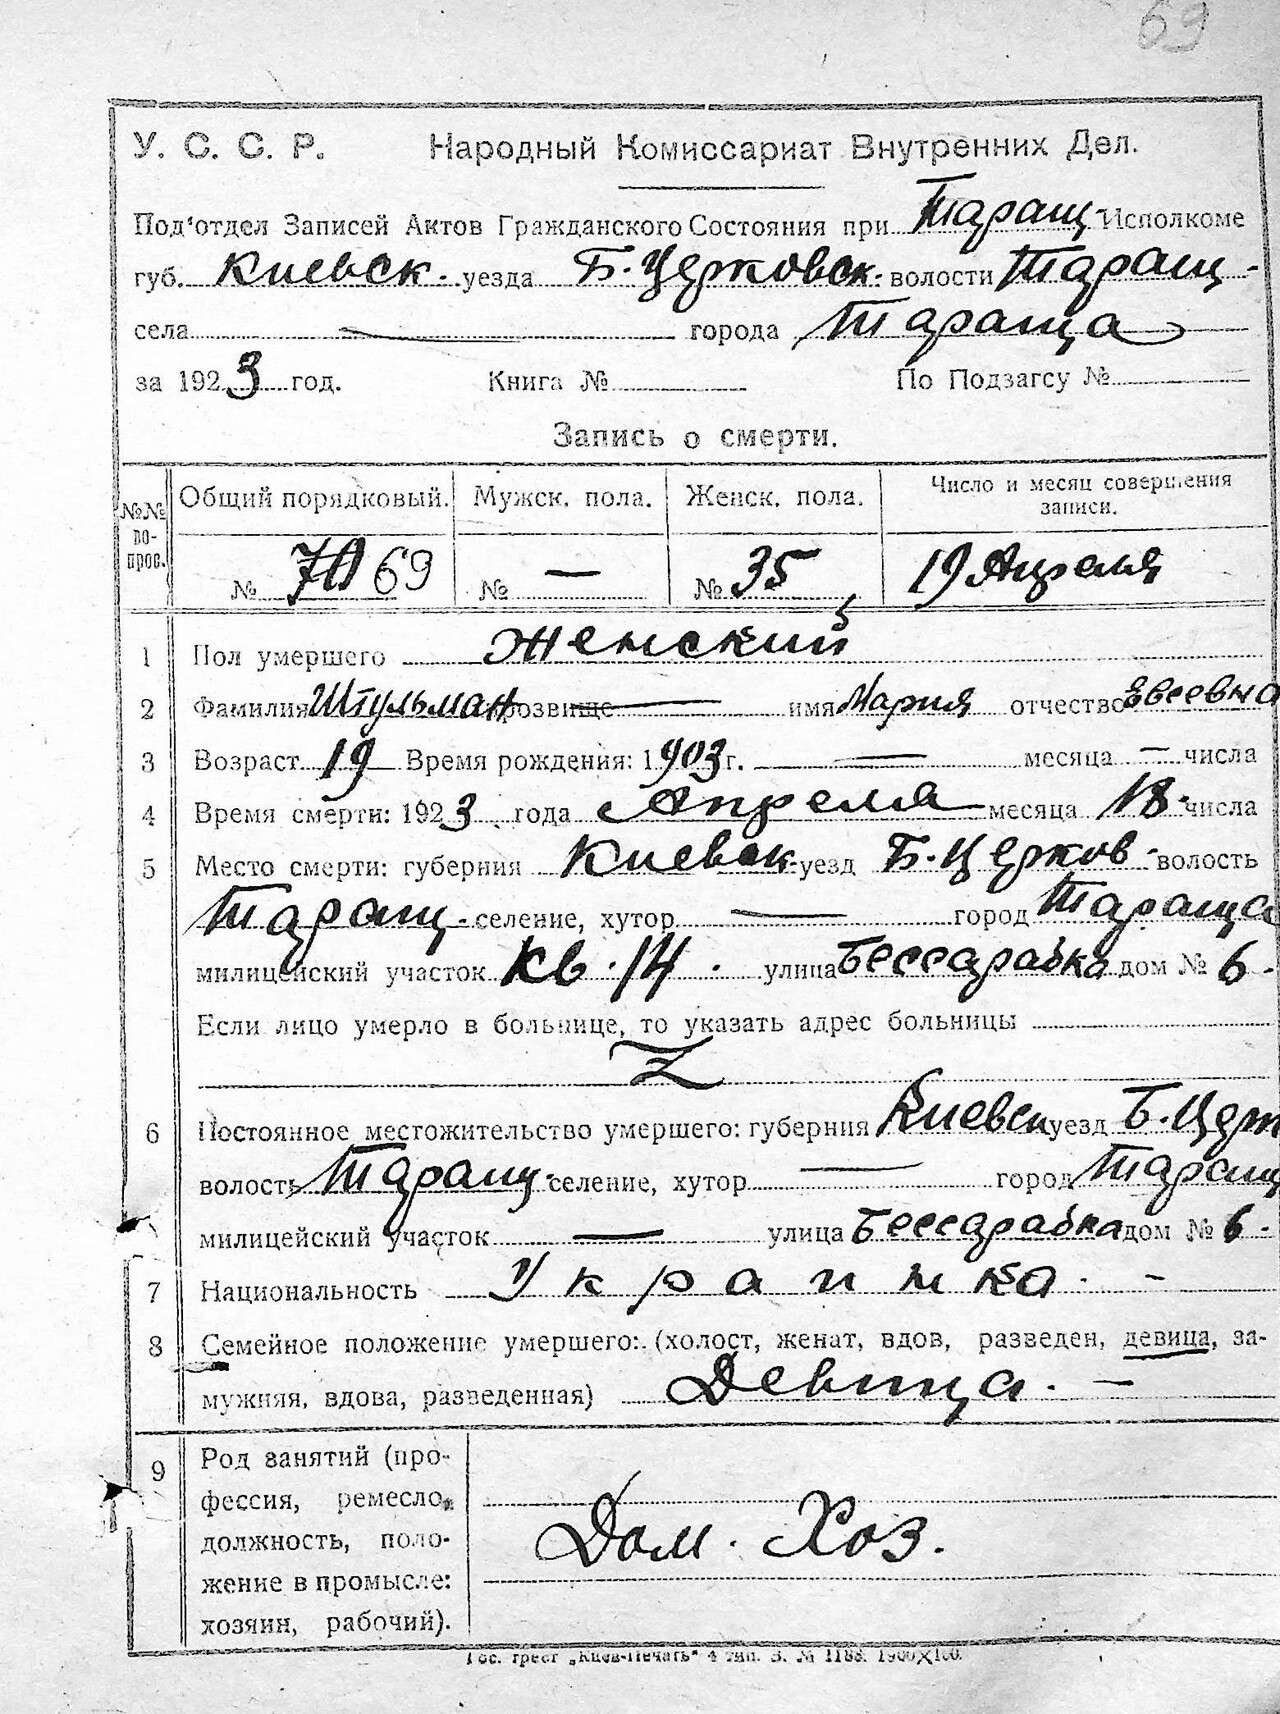 69
У. С. С. Р. Народный Комиссариат Внутренних Дел.
Под'отдел Записей Актов Гражданского Состояния при Таращ. Исполкоме
губ. Киевск. уезда Б. Церковск. волости Таращ-
села города Тараща
за 1923 год. Книга № По Подзагсу №
Запись о смерти.
№№ во-прос. Общий порядковый. Мужск. пола. Женск. пола. Число и месяц совершения записи.
№ 70 69 № — № 35 19 Апреля
1 Пол умершего Женский
2 Фамилия Штульман прозвище — имя Мария отчество Евсеевна
3 Возраст 19 Время рождения: 1903 г. — месяца — числа
4 Время смерти: 1923 года Апреля месяца 18 числа
5 Место смерти: губерния Киевск. уезд Б. Церков- волость
Таращ. селение, хутор — город Тараща
милицейский участок кв. 14. улица Бессарабка дом № 6.
Если лицо умерло в больнице, то указать адрес больницы
6 Постоянное местожительство умершего: губерния Киевск уезд Б. Церк
волость Таращ. селение, хутор — город Таращ
милицейский участок — улица Бессарабка дом № 6.
7 Национальность Украинка. —
8 Семейное положение умершего: (холост, женат, вдов, разведен, девица, за-
мужняя, вдова, разведенная) Девица. —
9 Род занятий (про-
фессия, ремесло,
должность, поло-
жение в промысле:
хозяин, рабочий).
Дом. Хоз.
Гос. трест „Киев-Печать" 4 тип. З. № 1188. 1900×100.